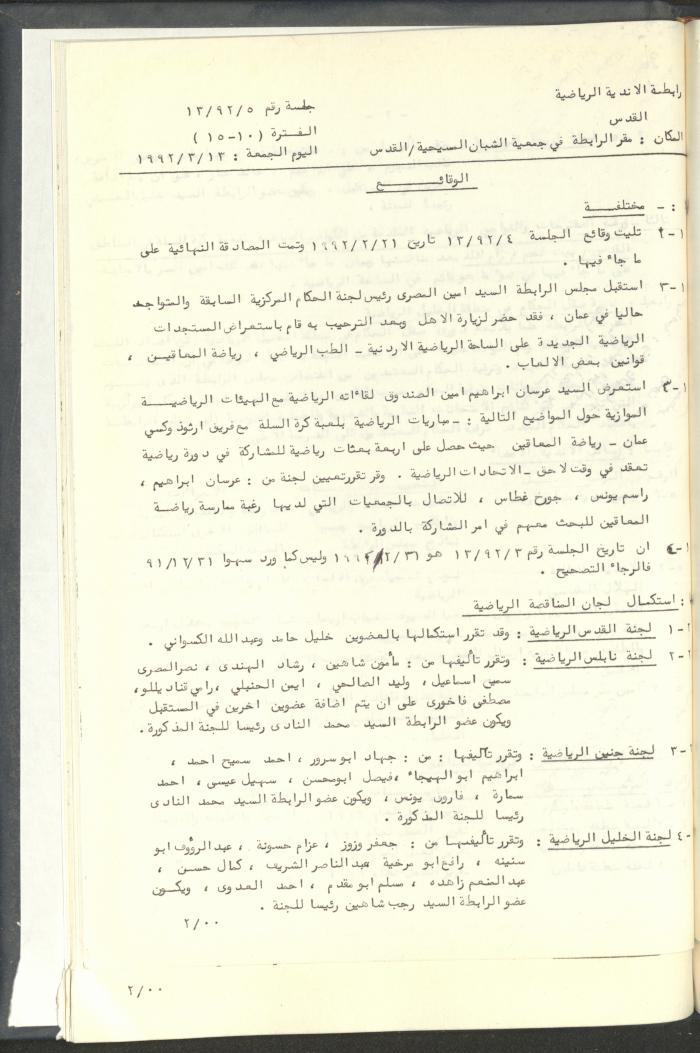 رابطة الاندية الرياضية
القدس
المكان : مقر الرابطة في جمعية الشبان المسيحية/القدس
جلسة رقم ١٣/٩٢/٥
الفترة (١٠-١٥)
اليوم الجمعة : ١٩٩٢/٣/١٣
الوقائع
١ : - مختلفة
١-٢ تليت وقائع الجلسة ١٣/٩٢/٤ تاريخ ١٩٩٢/٢/٢١ وتمت المصادقة النهائية على
ما جاء فيها .
١-٣ استقبل مجلس الرابطة السيد امين المصرى رئيس لجنة الحكام المركزية السابقة والمتواجد
حاليا في عمان ، فقد حضر لزيارة الاهل وبعد الترحيب به قام باستعراض المستجدات
الرياضية الجديدة على الساحة الرياضية الاردنية - الطب الرياضي ، رياضة المعاقين ،
قوانين بعض الالعاب .
١-٣ استعرض السيد عرسان ابراهيم امين الصندوق لقاءاته الرياضية مع الهيئات الرياضية
الموازية حول المواضيع التالية : - مباريات الرياضية بلعبة كرة السلة مع فريق ارثوذوكسي
عمان - رياضة المعاقين حيث حصل على اربعة بعثات رياضية للمشاركة في دورة رياضية
تعقد في وقت لاحق - الاتحادات الرياضية . وقر تقرر تعيين لجنة من : عرسان ابراهيم ،
راسم يونس ، جورج غطاس ، للاتصال بالجمعيات التي لديها رغبة ممارسة رياضة
المعاقين للبحث معهم في امر المشاركة بالدورة .
١-٤ ان تاريخ الجلسة رقم ١٣/٩٢/٣ هو وليس كما ورد سهوا ٩١/١٢/٣١
فالرجاء التصحيح .
: استكمال لجان المناقصة الرياضية
٢-١ لجنة القدس الرياضية : وقد تقرر استكمالها بالعضوين خليل حامد وعبد الله الكسواني .
٢-٢ لجنة نابلس الرياضية : وتقرر تأليفها من : مأمون شاهين ، رشاد الهندى ، نصر المصرى
سميح اسماعيل ، وليد الصالحي ، ايمن الحنبلي ، رامي قناديللو،
مصطفى فاخورى على ان يتم اضافة عضوين اخرين في المستقبل
ويكون عضو الرابطة السيد محمد النادى رئيسا للجنة المذكورة .
٢-٣ لجنة جنين الرياضية : وتقرر تأليفها : من : جهاد ابو سرور ، احمد سميح احمد ،
ابراهيم ابو الهيجاء ،فيصل ابو محسن ، سهيل عيسى ، احمد
سمارة ، فاروق يونس ، ويكون عضو الرابطة السيد محمد النادى
رئيسا للجنة المذكورة .
-٤ لجنة الخليل الرياضية : وتقرر تأليفها من : جعفر وزوز ، عزام حسونة . عبد الرؤوف ابو
سنينه ، رافع ابو مرخية عبد الناصر الشريف ، كمال حسن ،
عبد المنعم زاهده ، مسلم ابو مقدم ، احمد العدوى ، ويكون
عضو الرابطة السيد رجب شاهين رئيسا للجنة .
٢/٠٠
٢/٠٠